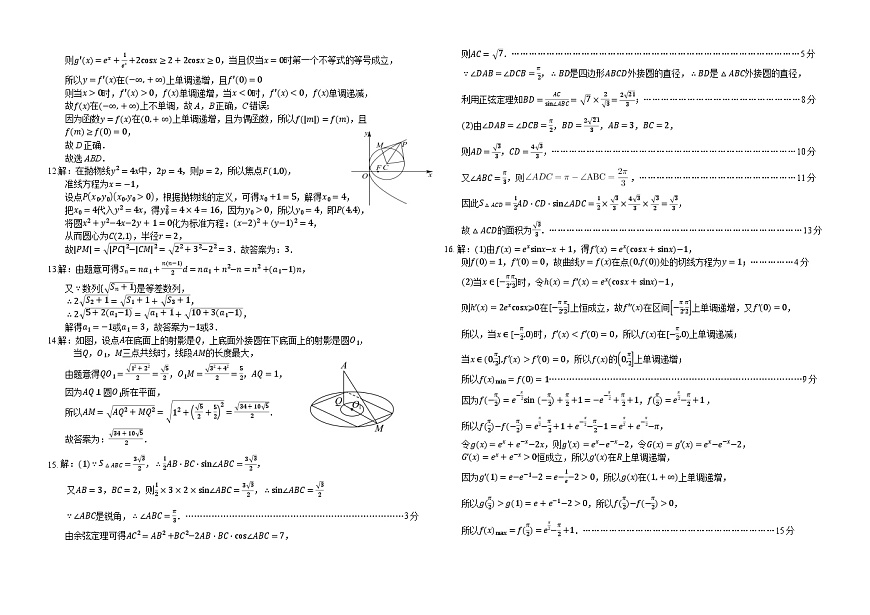 则g′(x)=eˣ+1/eˣ+2cosx≥2+2cosx≥0，当且仅当x=0时第一个不等式的等号成立，
所以y=f′(x)在(−∞,+∞)上单调递增，且f′(0)=0
则当x>0时，f′(x)>0，f(x)单调递增，当x<0时，f′(x)<0，f(x)单调递减，
故f(x)在(−∞,+∞)上不单调，故 A，B正确，C 错误；
因为函数y=f(x)在(0,+∞)上单调递增，且为偶函数，所以f(|m|)=f(m)，且
f(m)≥f(0)=0，
故 D 正确．
故选 ABD．
12.解：在抛物线y²=4x中，2p=4，则p=2，所以焦点F(1,0)，
准线方程为x=−1，
设点P(x₀,y₀)(x₀,y₀>0)，根据抛物线的定义，可得x₀+1=5，解得x₀=4，
把x₀=4代入y²=4x，得y₀²=4×4=16，因为y₀>0，所以y₀=4，即P(4,4)，
将圆x²+y²−4x−2y+1=0化为标准方程：(x−2)²+(y−1)²=4，
从而圆心为C(2,1)，半径r=2，
故|PM|=√(|PC|²−|CM|²)=√(2²+3²−2²)=3．故答案为：3．
y
M
P
O
F
C
x
13.解：由题意可得Sₙ=na₁+n(n−1)/2 d=na₁+n²−n=n²+(a₁−1)n，
又∵数列{√(Sₙ+1)}是等差数列，
∴2√(S₂+1)=√(S₁+1)+√(S₃+1)，
∴2√(5+2(a₁−1))=√(a₁+1)+√(10+3(a₁−1))，
解得a₁=−1或a₁=3，故答案为−1或3．
14.解：如图，设点A在底面上的射影是Q，上底面外接圆在下底面上的射影是圆O₁，
当Q，O₁，M三点共线时，线段AM的长度最大，
由题意得QO₁=√(1²+2²)/2=√5/2，O₁M=√(3²+4²)/2=5/2，AQ=1，
因为AQ⊥圆O₁所在平面，
所以AM=√(AQ²+MQ²)=√(1²+(√5/2+5/2)²)=√(34+10√5)/2．
故答案为：√(34+10√5)/2．
A
Q
O₁
M
15.解：(1)∵S△ABC=3√3/2，∴1/2AB·BC·sin∠ABC=3√3/2，
又AB=3，BC=2，则1/2×3×2×sin∠ABC=3√3/2，∴sin∠ABC=√3/2
∵∠ABC是锐角，∴∠ABC=π/3．……3 分
由余弦定理可得AC²=AB²+BC²−2AB·BC·cos∠ABC=7，
则AC=√7．……5 分
∵∠DAB=∠DCB=π/2，∴BD是四边形ABCD外接圆的直径，∴BD是△ABC外接圆的直径，
利用正弦定理知BD=AC/sin∠ABC=√7×2/√3=2√21/3；……8 分
(2)由∠DAB=∠DCB=π/2，BD=2√21/3，AB=3，BC=2，
则AD=√3/3，CD=4√3/3，……10 分
又∠ABC=π/3，则∠ADC=π−∠ABC=2π/3，……11 分
因此S△ACD=1/2AD·CD·sin∠ADC=1/2×√3/3×4√3/3×√3/2=√3/3，
故△ACD的面积为√3/3．……13 分
16.解：(1)由f(x)=eˣsinx−x+1，得f′(x)=eˣ(cosx+sinx)−1，
则f(0)=1，f′(0)=0，故曲线y=f(x)在点(0,f(0))处的切线方程为y=1；……4 分
(2)当x∈[−π/2,π/2]时，令h(x)=f′(x)=eˣ(cosx+sinx)−1，
则h′(x)=2eˣcosx≥0在[−π/2,π/2]上恒成立，故f′(x)在区间[−π/2,π/2]上单调递增，又f′(0)=0，
所以，当x∈[−π/2,0)时，f′(x)<f′(0)=0，所以f(x)在[−π/2,0)上单调递减；
当x∈(0,π/2],f′(x)>f′(0)=0，所以f(x)的[0,π/2]上单调递增；
所以f(x)min=f(0)=1……9 分
因为f(−π/2)=e^(−π/2)sin(−π/2)+π/2+1=−e^(−π/2)+π/2+1，f(π/2)=e^(π/2)−π/2+1，
所以f(π/2)−f(−π/2)=e^(π/2)−π/2+1+e^(−π/2)−π/2−1=e^(π/2)+e^(−π/2)−π，
令g(x)=eˣ+e⁻ˣ−2x，则g′(x)=eˣ−e⁻ˣ−2，令G(x)=g′(x)=eˣ−e⁻ˣ−2，
G′(x)=eˣ+e⁻ˣ>0恒成立，所以g′(x)在R上单调递增，
因为g′(1)=e−e⁻¹−2=e−1/e−2>0，所以g(x)在(1,+∞)上单调递增，
所以g(π/2)>g(1)=e+e⁻¹−2>0，所以f(π/2)−f(−π/2)>0，
所以f(x)max=f(π/2)=e^(π/2)−π/2+1．……15 分